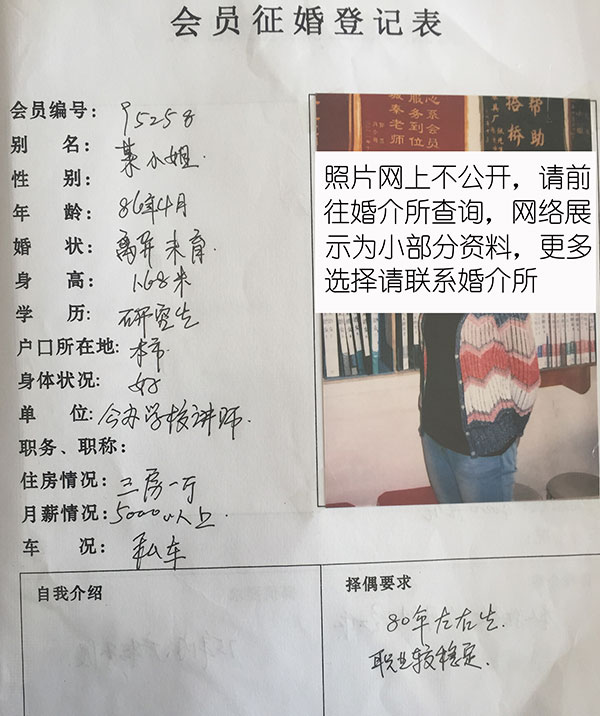 会员征婚登记表
会员编号: 95258
别 名: 某小姐.
性 别:
年 龄: 86年4月
婚 状: 离异未育
身 高: 1.68米
学 历: 研究生
户口所在地: 本市
身体状况: 好
单 位: 公办学校讲师.
职务、职称:
住房情况: 三房一厅
月薪情况: 5000以上.
车 况: 私车
心系会员
服务到位
帮助
搭桥
照片网上不公开，请前
往婚介所查询，网络展
示为小部分资料，更多
选择请联系婚介所
自我介绍
择偶要求
80年左右生.
职业较稳定.